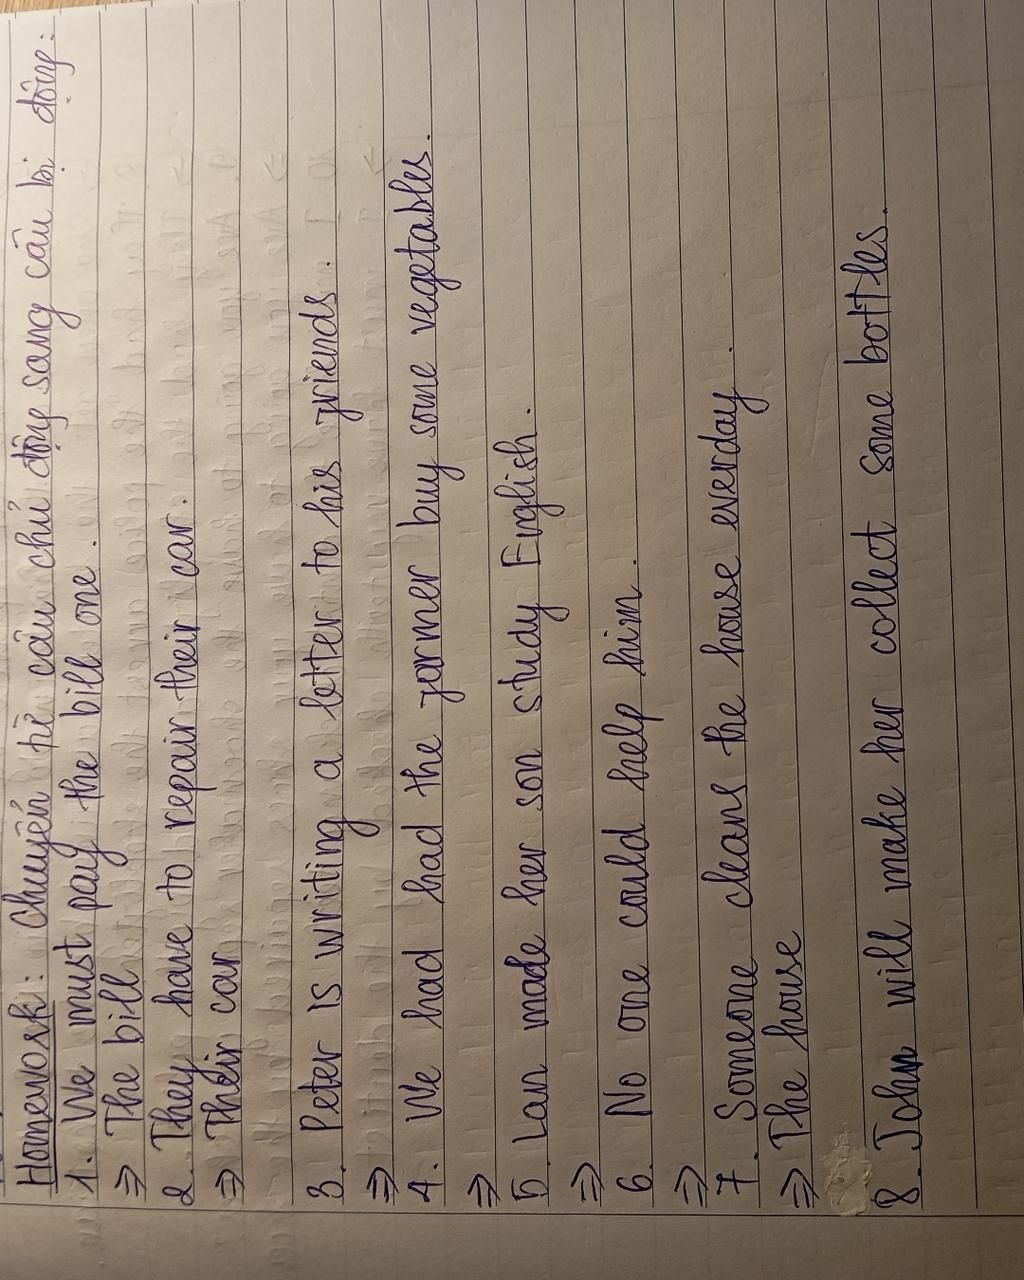 Homework: chuyển từ câu chủ động sang câu bị động:
1. We must pay the bill one.
⇒ The bill
2. They have to repair their car.
⇒ Their car
3. Peter is writing a letter to his friends.
⇒
4. We had had the farmer buy some vegetables.
⇒
5. Lan made her son study English.
⇒
6. No one could help him.
⇒
7. Someone cleans the house everday.
⇒ The house
8. John will make her collect some bottles.